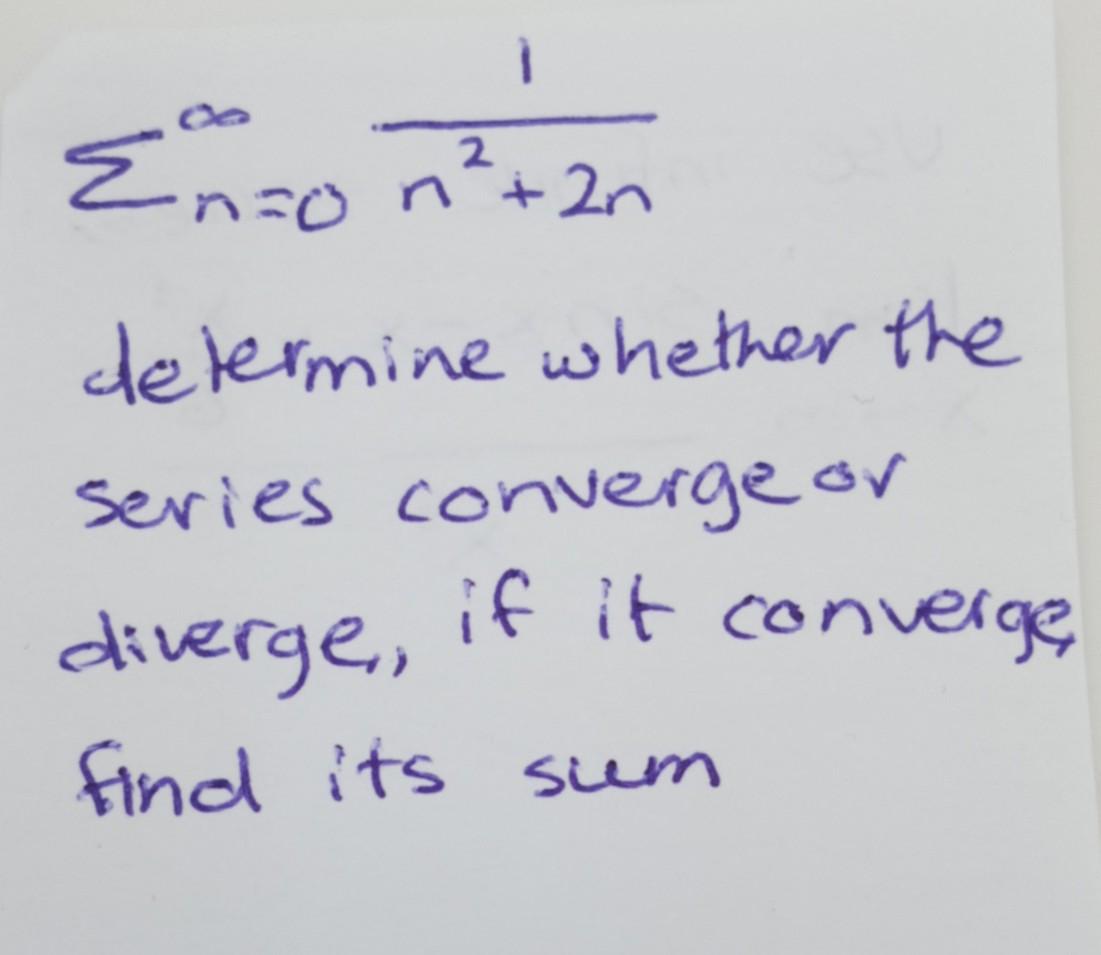 ∑_{n=0}^{∞} 1/(n² + 2n)
determine whether the
series converge or
diverge, if it converge,
find its sum